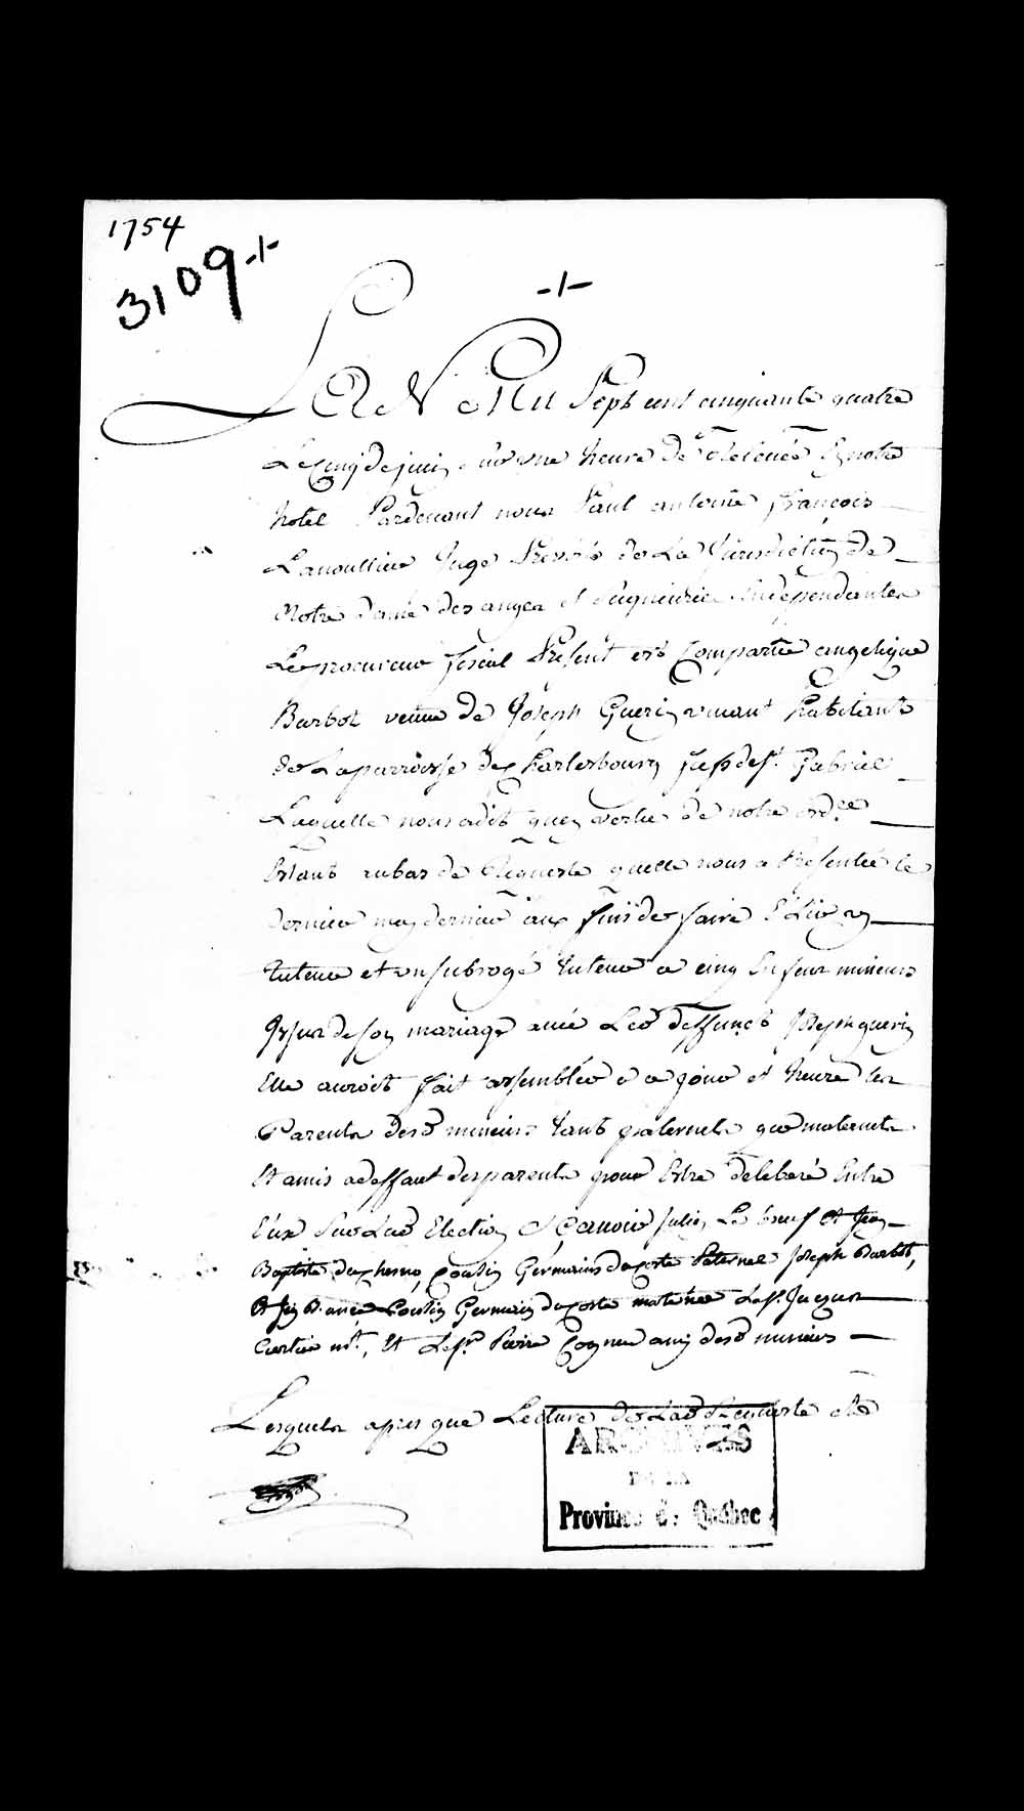 1754
3109 -/-
-/-
L'AN Mil Sept cent cinquante quatre
Le cinq de juin, une heure de relevée En notre
hotel Pardevant nous Paul antoine françois
Lanoullier Juge Prevost de La Jurisdiction de
Notre dame des anges et Seigneuries independantes
Le procureur fiscal Present est Comparue angelique
Barbot veuve de Joseph Guerin vivant habitant
de La parroisse de Charlesbourg St. Gabriel
Laquelle nous a dit qu'en vertu de notre ord.ce
Estant au bas de Requeste quelle nous a Presentée le
dernier may dernier aux fins de faire Elire un
tuteur et un subrogé tuteur a cinq Enfans mineurs
Issus de son mariage avec Led deffunct Joseph guerin
Elle auroit fait assembler a ce jour et heure les
Parents desd mineurs tant paternels que maternels
Et amis a deffaut des parents pour Estre deliberé Entre
Eux Sur Lad Election Scavoir Le beuf Et Jean
Baptiste Duchesne, Cousin Germains du coste Paternel Joseph Barbot,
Cousin Germain du coste maternel Le Sr. Jacques
Cartier nt., Et Le Sr. Pierre amy desd mineurs
Lesquels apres que Lecture de Lad Requeste
ARCHIVES
DE LA
Province de Québec